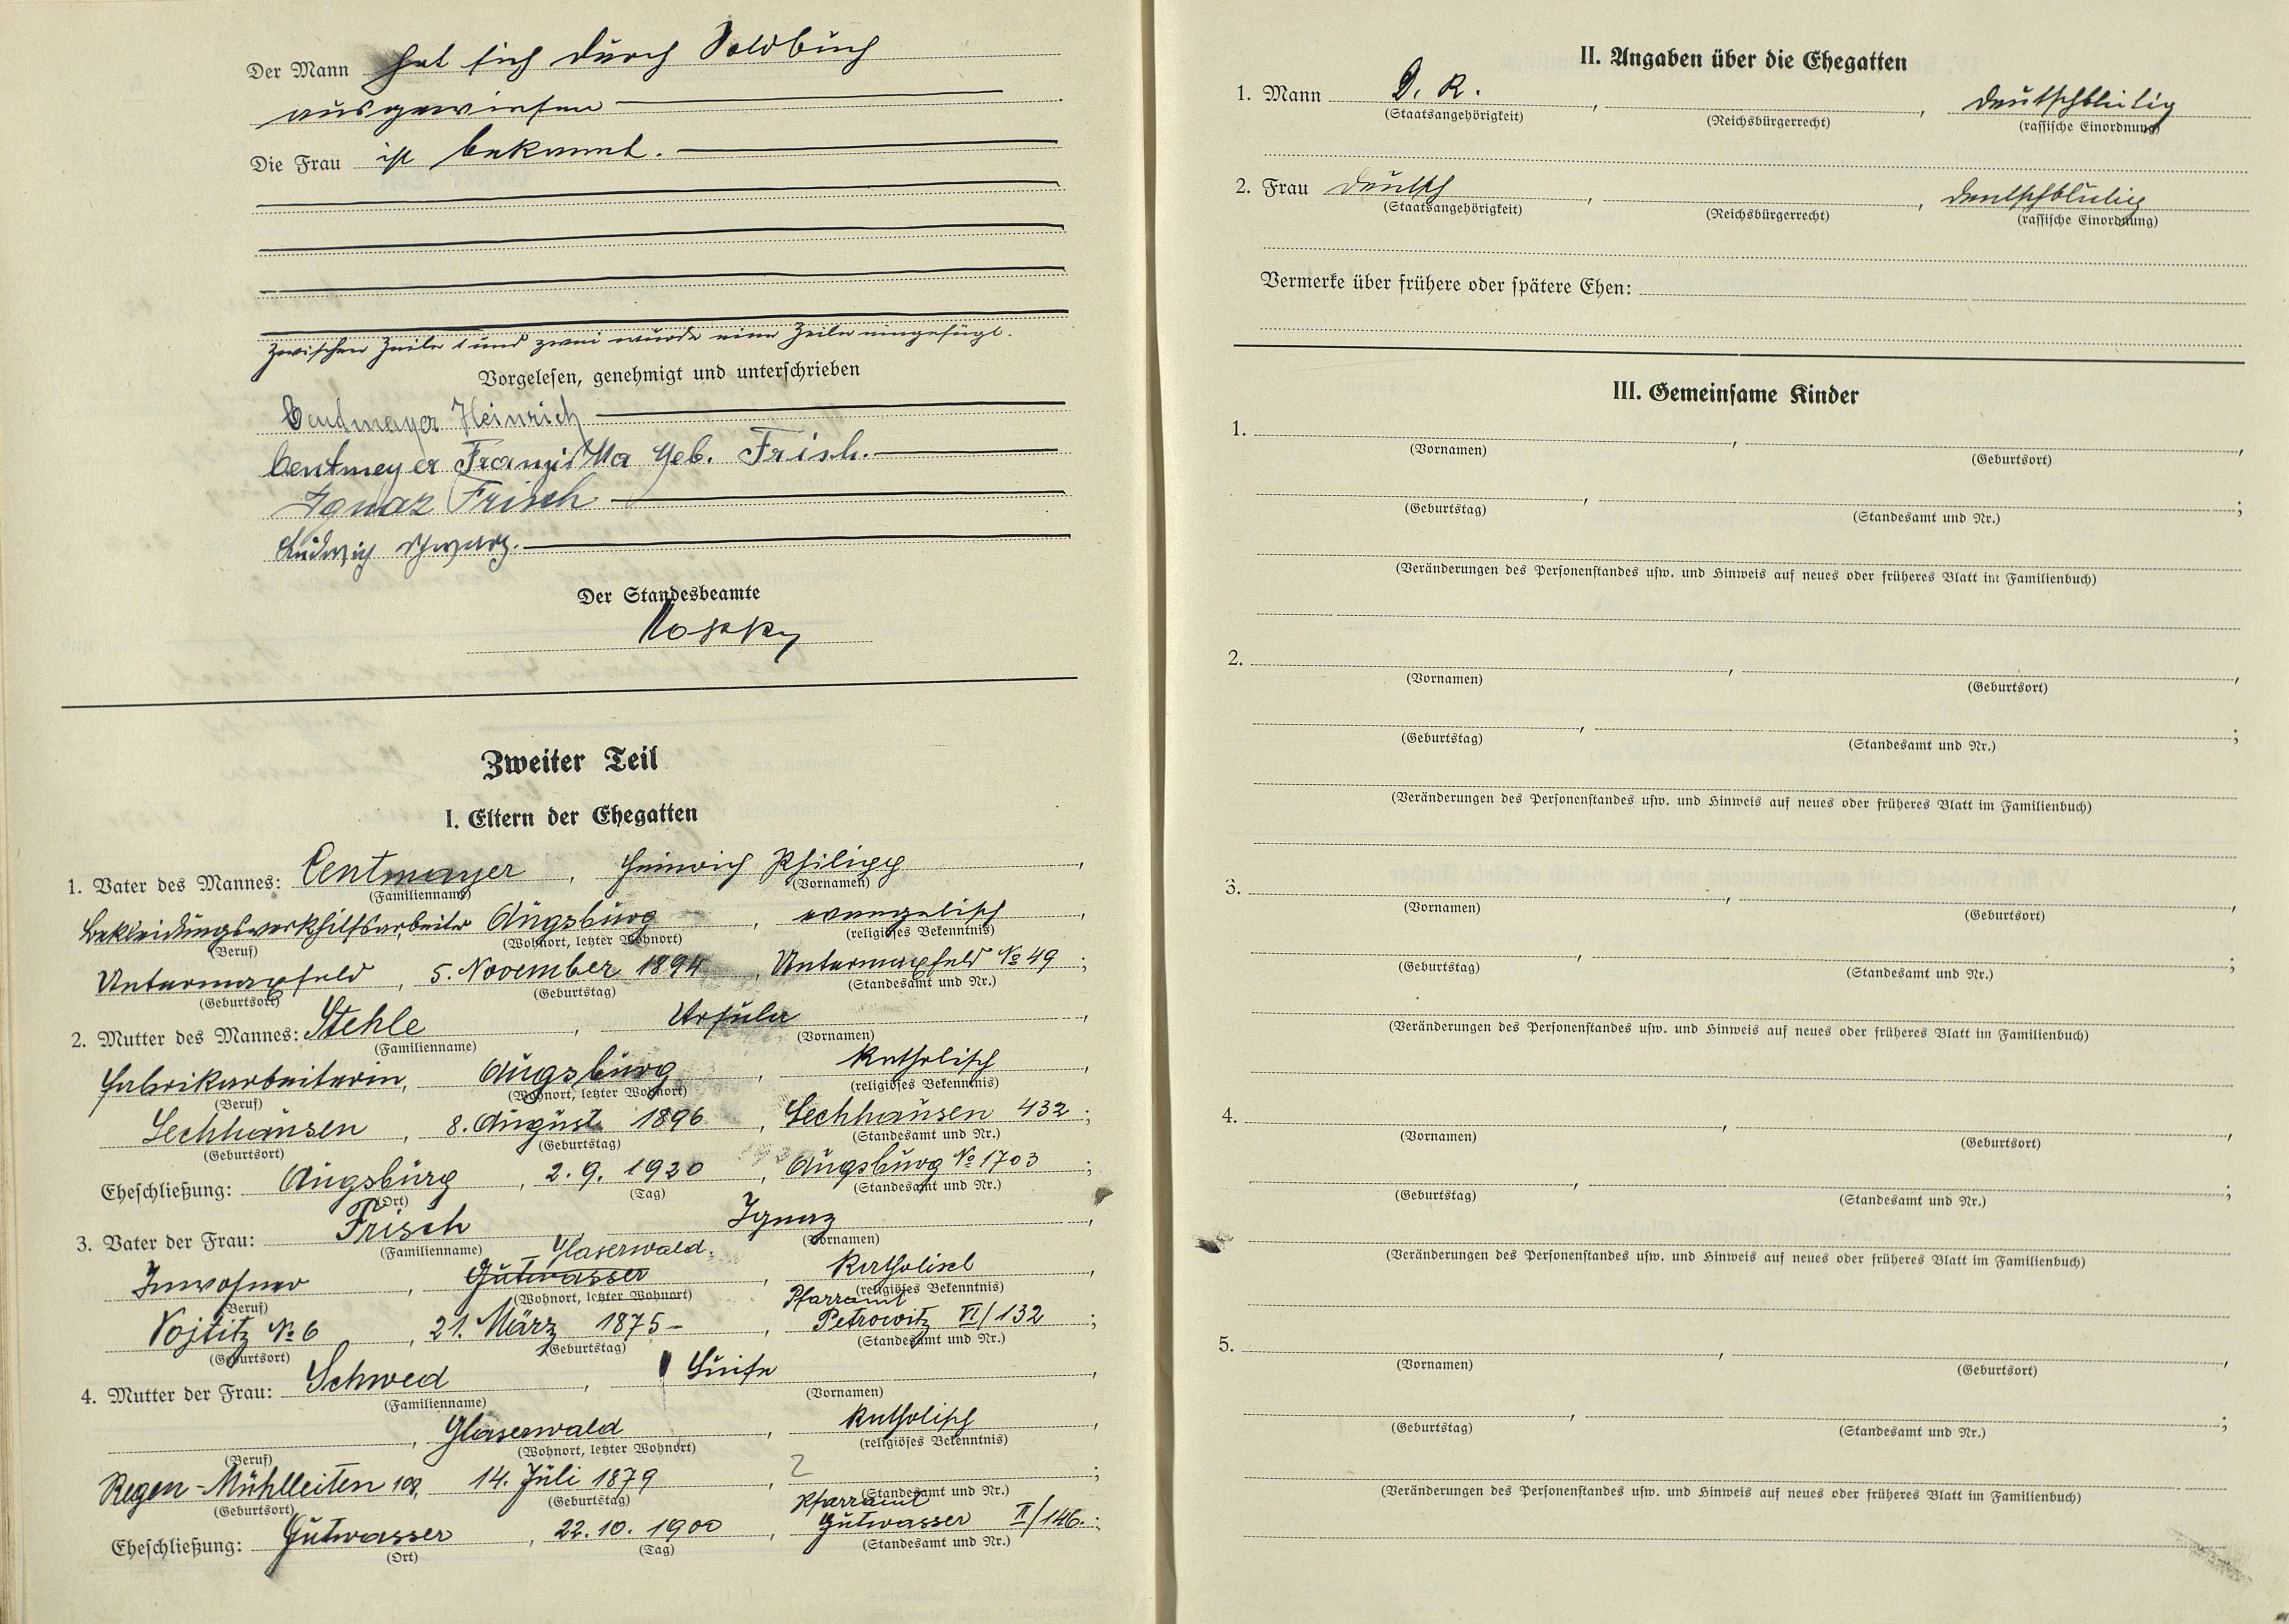 Der Mann hat sich durch Soldbuch
ausgewiesen
Die Frau ist bekannt.
Zwischen Zeile 1 und zwei wurde eine Zeile eingefügt.
Vorgelesen, genehmigt und unterschrieben
Centmayer Heinrich
Centmeyer Franziska geb. Frisch.
Ignaz Frisch
Ludwig Schwarz.
Der Standesbeamte
Zweiter Teil
I. Eltern der Ehegatten
1. Vater des Mannes: Centmayer, Heinrich Philipp,
(Familienname) (Vornamen)
Bekleidungswerkhilfsarbeiter Augsburg, evangelisch,
(Beruf) (Wohnort, letzter Wohnort) (religiöses Bekenntnis)
Untermaxfeld, 5. November 1894, Untermaxfeld № 49;
(Geburtsort) (Geburtstag) (Standesamt und Nr.)
2. Mutter des Mannes: Stehle, Ursula,
(Familienname) (Vornamen)
Fabrikarbeiterin, Augsburg, katholisch,
(Beruf) (Wohnort, letzter Wohnort) (religiöses Bekenntnis)
Lechhausen, 8. August 1896, Lechhausen 432;
(Geburtsort) (Geburtstag) (Standesamt und Nr.)
Eheschließung: Augsburg, 2. 9. 1920, Augsburg № 1703;
(Ort) (Tag) (Standesamt und Nr.)
3. Vater der Frau: Frisch, Ignaz,
(Familienname) (Vornamen)
Glaserwald.
Inwohner, Gutwasser, Katholisch,
(Beruf) (Wohnort, letzter Wohnort) (religiöses Bekenntnis)
Pfarramt
Vojtitz № 6, 21. März 1875 -, Petrowitz VI/132;
(Geburtsort) (Geburtstag) (Standesamt und Nr.)
4. Mutter der Frau: Schwed, Luise,
(Familienname) (Vornamen)
, Glaserwald, katholisch,
(Beruf) (Wohnort, letzter Wohnort) (religiöses Bekenntnis)
Regen-Mühlleiten 108, 14. Juli 1879, ;
(Geburtsort) (Geburtstag) (Standesamt und Nr.)
Pfarramt
Eheschließung: Gutwasser, 22. 10. 1900, Gutwasser II/146.;
(Ort) (Tag) (Standesamt und Nr.)
II. Angaben über die Ehegatten
1. Mann D. R., , deutschblütig
(Staatsangehörigkeit) (Reichsbürgerrecht) (rassische Einordnung)
2. Frau deutsch, , deutschblütig
(Staatsangehörigkeit) (Reichsbürgerrecht) (rassische Einordnung)
Vermerke über frühere oder spätere Ehen:
III. Gemeinsame Kinder
1. , ,
(Vornamen) (Geburtsort)
, ;
(Geburtstag) (Standesamt und Nr.)
(Veränderungen des Personenstandes usw. und Hinweis auf neues oder früheres Blatt im Familienbuch)
2. , ,
(Vornamen) (Geburtsort)
, ;
(Geburtstag) (Standesamt und Nr.)
(Veränderungen des Personenstandes usw. und Hinweis auf neues oder früheres Blatt im Familienbuch)
3. , ,
(Vornamen) (Geburtsort)
, ;
(Geburtstag) (Standesamt und Nr.)
(Veränderungen des Personenstandes usw. und Hinweis auf neues oder früheres Blatt im Familienbuch)
4. , ,
(Vornamen) (Geburtsort)
, ;
(Geburtstag) (Standesamt und Nr.)
(Veränderungen des Personenstandes usw. und Hinweis auf neues oder früheres Blatt im Familienbuch)
5. , ,
(Vornamen) (Geburtsort)
, ;
(Geburtstag) (Standesamt und Nr.)
(Veränderungen des Personenstandes usw. und Hinweis auf neues oder früheres Blatt im Familienbuch)